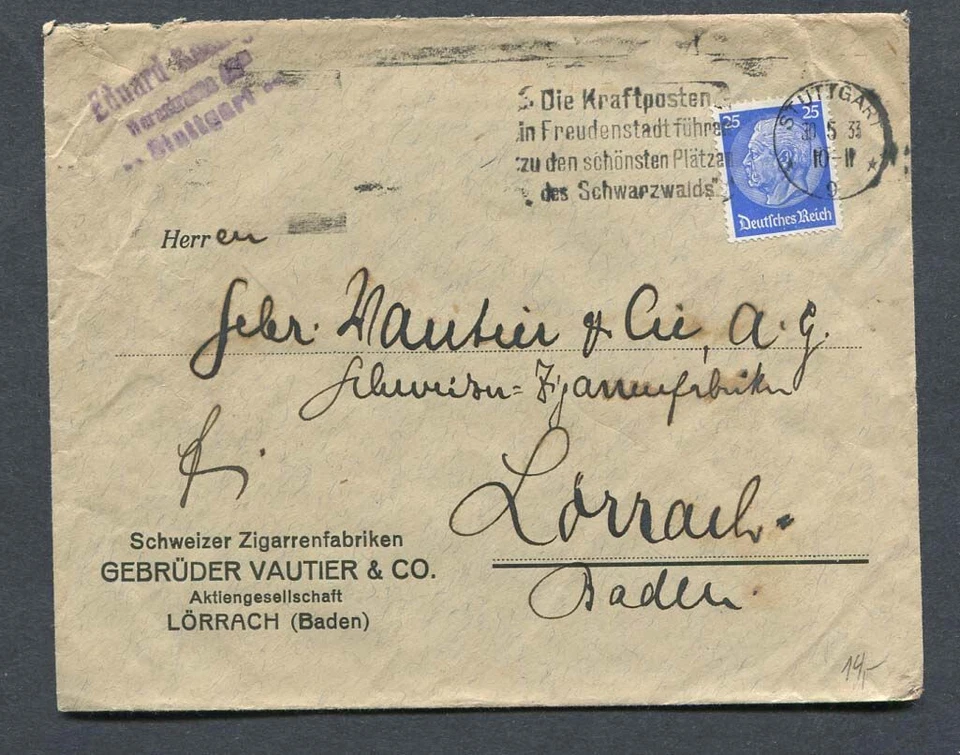 Eduard
Stuttgart
Die Kraftposten
in Freudenstadt führen
zu den schönsten Plätzen
des Schwarzwalds"
STUTTGART
30 5 33
10-11
9
25 25
Deutsches Reich
Herren
Gebr. Vautier & Cie, A. G.
Schweizer=Zigarrenfabriken
Lörrach.
Baden.
Schweizer Zigarrenfabriken
GEBRÜDER VAUTIER & CO.
Aktiengesellschaft
LÖRRACH (Baden)
14,-